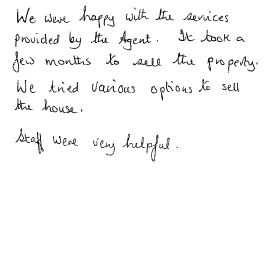 We were happy with the services
provided by the Agent. It took a
few months to sell the property.
We tried various options to sell
the house.
Staff were very helpful.